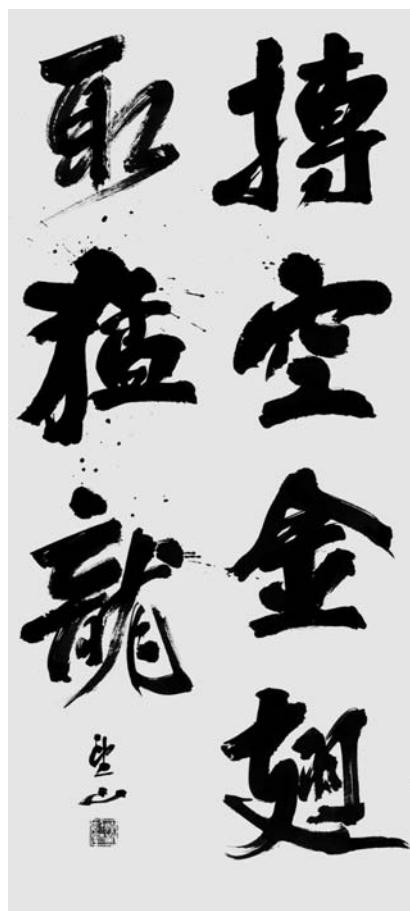 搏空金翅
取猛龍
山